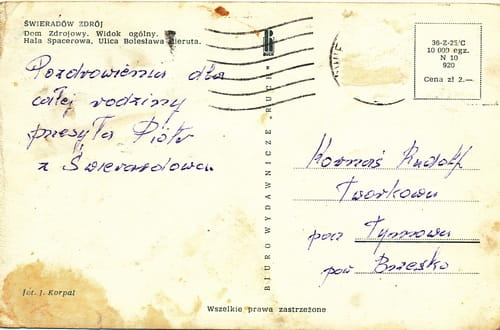 ŚWIERADÓW ZDRÓJ
Dom Zdrojowy. Widok ogólny.
Hala Spacerowa, Ulica Bolesława Bieruta.
Pozdrowienia dla
całej rodziny
przesyła Piotr
z Świeradowa.
fot. J. Korpal
BIURO WYDAWNICZE „RUCH"
36-Z-25/C
10 000 egz.
N 10
920
Cena zł 2.—
Kornaś Rudolf
Tworkowa
pocz Tymowa
pow Brzesko
Wszelkie prawa zastrzeżone